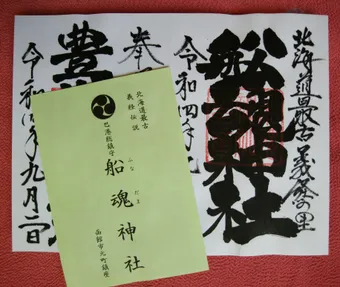 北海道最古義経の里
船魂神社
令和四年九
奉
豊
令和四年九月二日
北海道最古
義経伝説
巴港総鎮守
船魂神社
ふな
だま
函館市元町鎮座